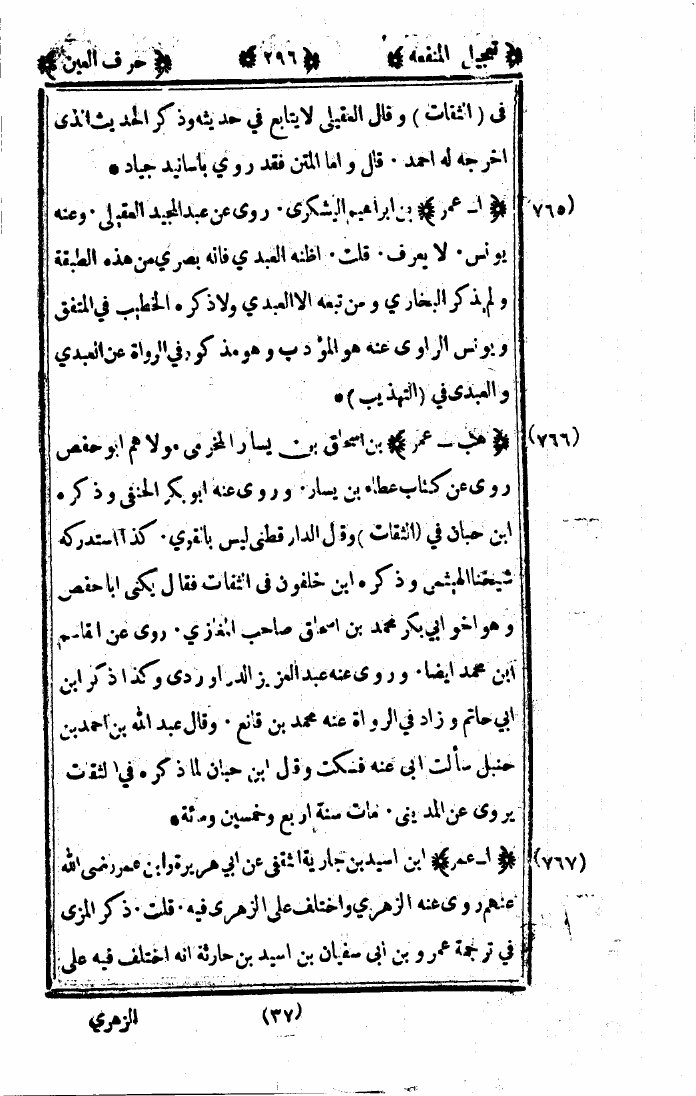 ﴿ تعجيل المنفعه ﴾ ﴿ ٢٩٦ ﴾ ﴿ حرف العين ﴾
فى ( الثقات ) وقال العقيلى لايتابع في حديثه وذكر الحديث الذى
اخرجه له احمد · قال واما المتن فقد روي باسانيد جياد *
(٧٦٥) ﴿ ا ـ عمر ﴾ بن ابراهيم اليشكرى · روى عن عبد المجيد العقيلى · وعنه
يونس · لا يعرف · قلت · اظنه العبدي فانه بصري من هذه الطبقة
ولم يذكر البخاري ومن تبعه الا العبدي ولا ذكره الخطيب في المتفق
ويونس الراوى عنه هو المؤدب وهو مذكور في الرواة عن العبدي
والعبدى في ( التهذيب ) *
(٧٦٦) ﴿ هب ـ عمر ﴾ بن اسحاق بن يسار المخرمى مولاهم ابو حفص
روى عن كتاب عطاء بن يسار · وروى عنه ابو بكر الحنفى وذكره
ابن حبان في ( الثقات ) وقال الدار قطنى ليس بالقوي · كذا استدركه
شيخنا الهيثمى وذكره ابن خلفون فى الثقات فقال يكنى ابا حفص
وهو اخو ابي بكر محمد بن اسحاق صاحب المغازي · روى عن القاسم
ابن محمد ايضا · وروى عنه عبد العزيز الدراوردى وكذا ذكر ابن
ابي حاتم وزاد في الرواة عنه محمد بن قانع · وقال عبد الله بن احمد بن
حنبل سألت ابى عنه فسكت وقال ابن حبان لما ذكره في الثقات
يروى عن المدينى · مات سنة اربع وخمسين ومائة *
(٧٦٧) ﴿ ا ـ عمر ﴾ ابن اسيد بن جارية الثقفى عن ابي هريرة وابن عمر رضى الله
عنهم روى عنه الزهري واختلف على الزهرى فيه · قلت · ذكر المزى
في ترجمة عمرو بن ابى سفيان بن اسيد بن حارثة انه اختلف فيه على
(٣٧) الزهري